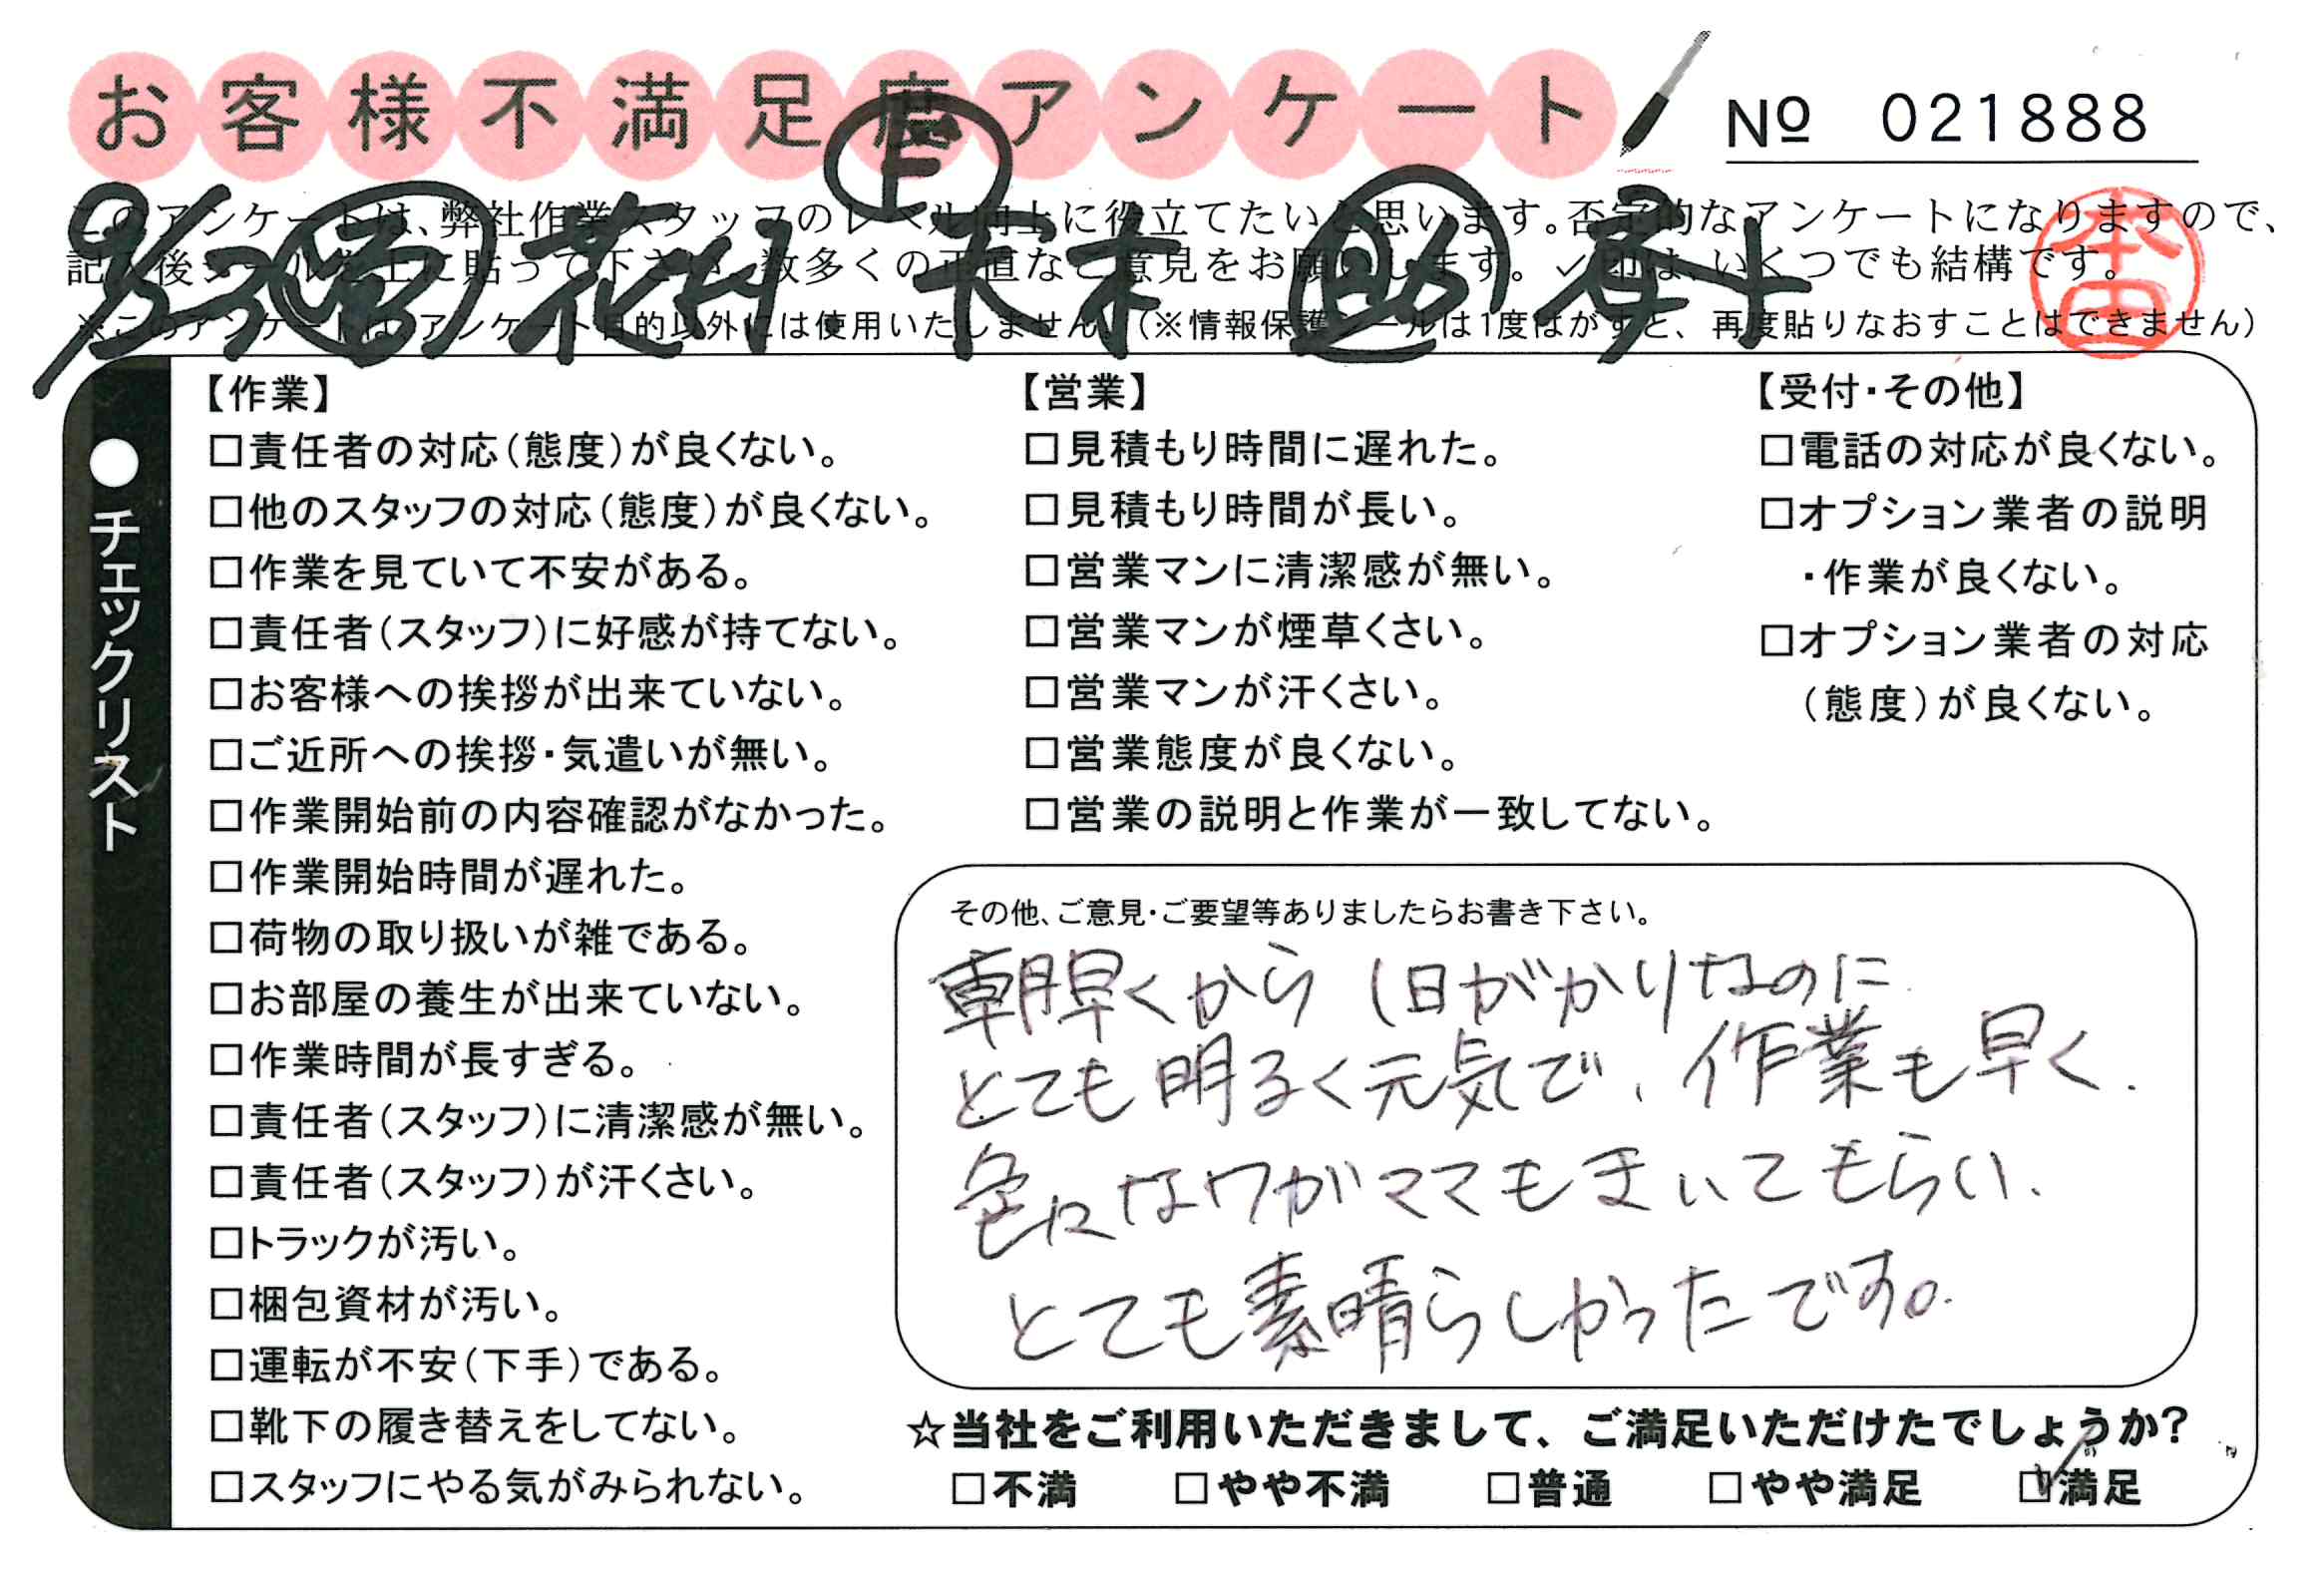 お客様不満足度アンケート
Nº 021888
このアンケートは、弊社作業スタッフのレベル向上に役立てたいと思います。否定的なアンケートになりますので、
記入後シールを上に貼って下さい。数多くの正直なご意見をお願いします。✓印は、いくつでも結構です。
※このアンケートは、アンケート目的以外には使用いたしません。(※情報保護シールは1度はがすと、再度貼りなおすことはできません)
9/23
E
末木
本田
●チェックリスト
【作業】
□責任者の対応(態度)が良くない。
□他のスタッフの対応(態度)が良くない。
□作業を見ていて不安がある。
□責任者(スタッフ)に好感が持てない。
□お客様への挨拶が出来ていない。
□ご近所への挨拶・気遣いが無い。
□作業開始前の内容確認がなかった。
□作業開始時間が遅れた。
□荷物の取り扱いが雑である。
□お部屋の養生が出来ていない。
□作業時間が長すぎる。
□責任者(スタッフ)に清潔感が無い。
□責任者(スタッフ)が汗くさい。
□トラックが汚い。
□梱包資材が汚い。
□運転が不安(下手)である。
□靴下の履き替えをしてない。
□スタッフにやる気がみられない。
【営業】
□見積もり時間に遅れた。
□見積もり時間が長い。
□営業マンに清潔感が無い。
□営業マンが煙草くさい。
□営業マンが汗くさい。
□営業態度が良くない。
□営業の説明と作業が一致してない。
【受付・その他】
□電話の対応が良くない。
□オプション業者の説明
・作業が良くない。
□オプション業者の対応
(態度)が良くない。
その他、ご意見・ご要望等ありましたらお書き下さい。
朝早くから1日がかりなのに
とても明るく元気で、作業も早く、
色々なワガママもきいてもらい、
とても素晴らしかったです。
☆当社をご利用いただきまして、ご満足いただけたでしょうか?
□不満 □やや不満 □普通 □やや満足 ☑満足